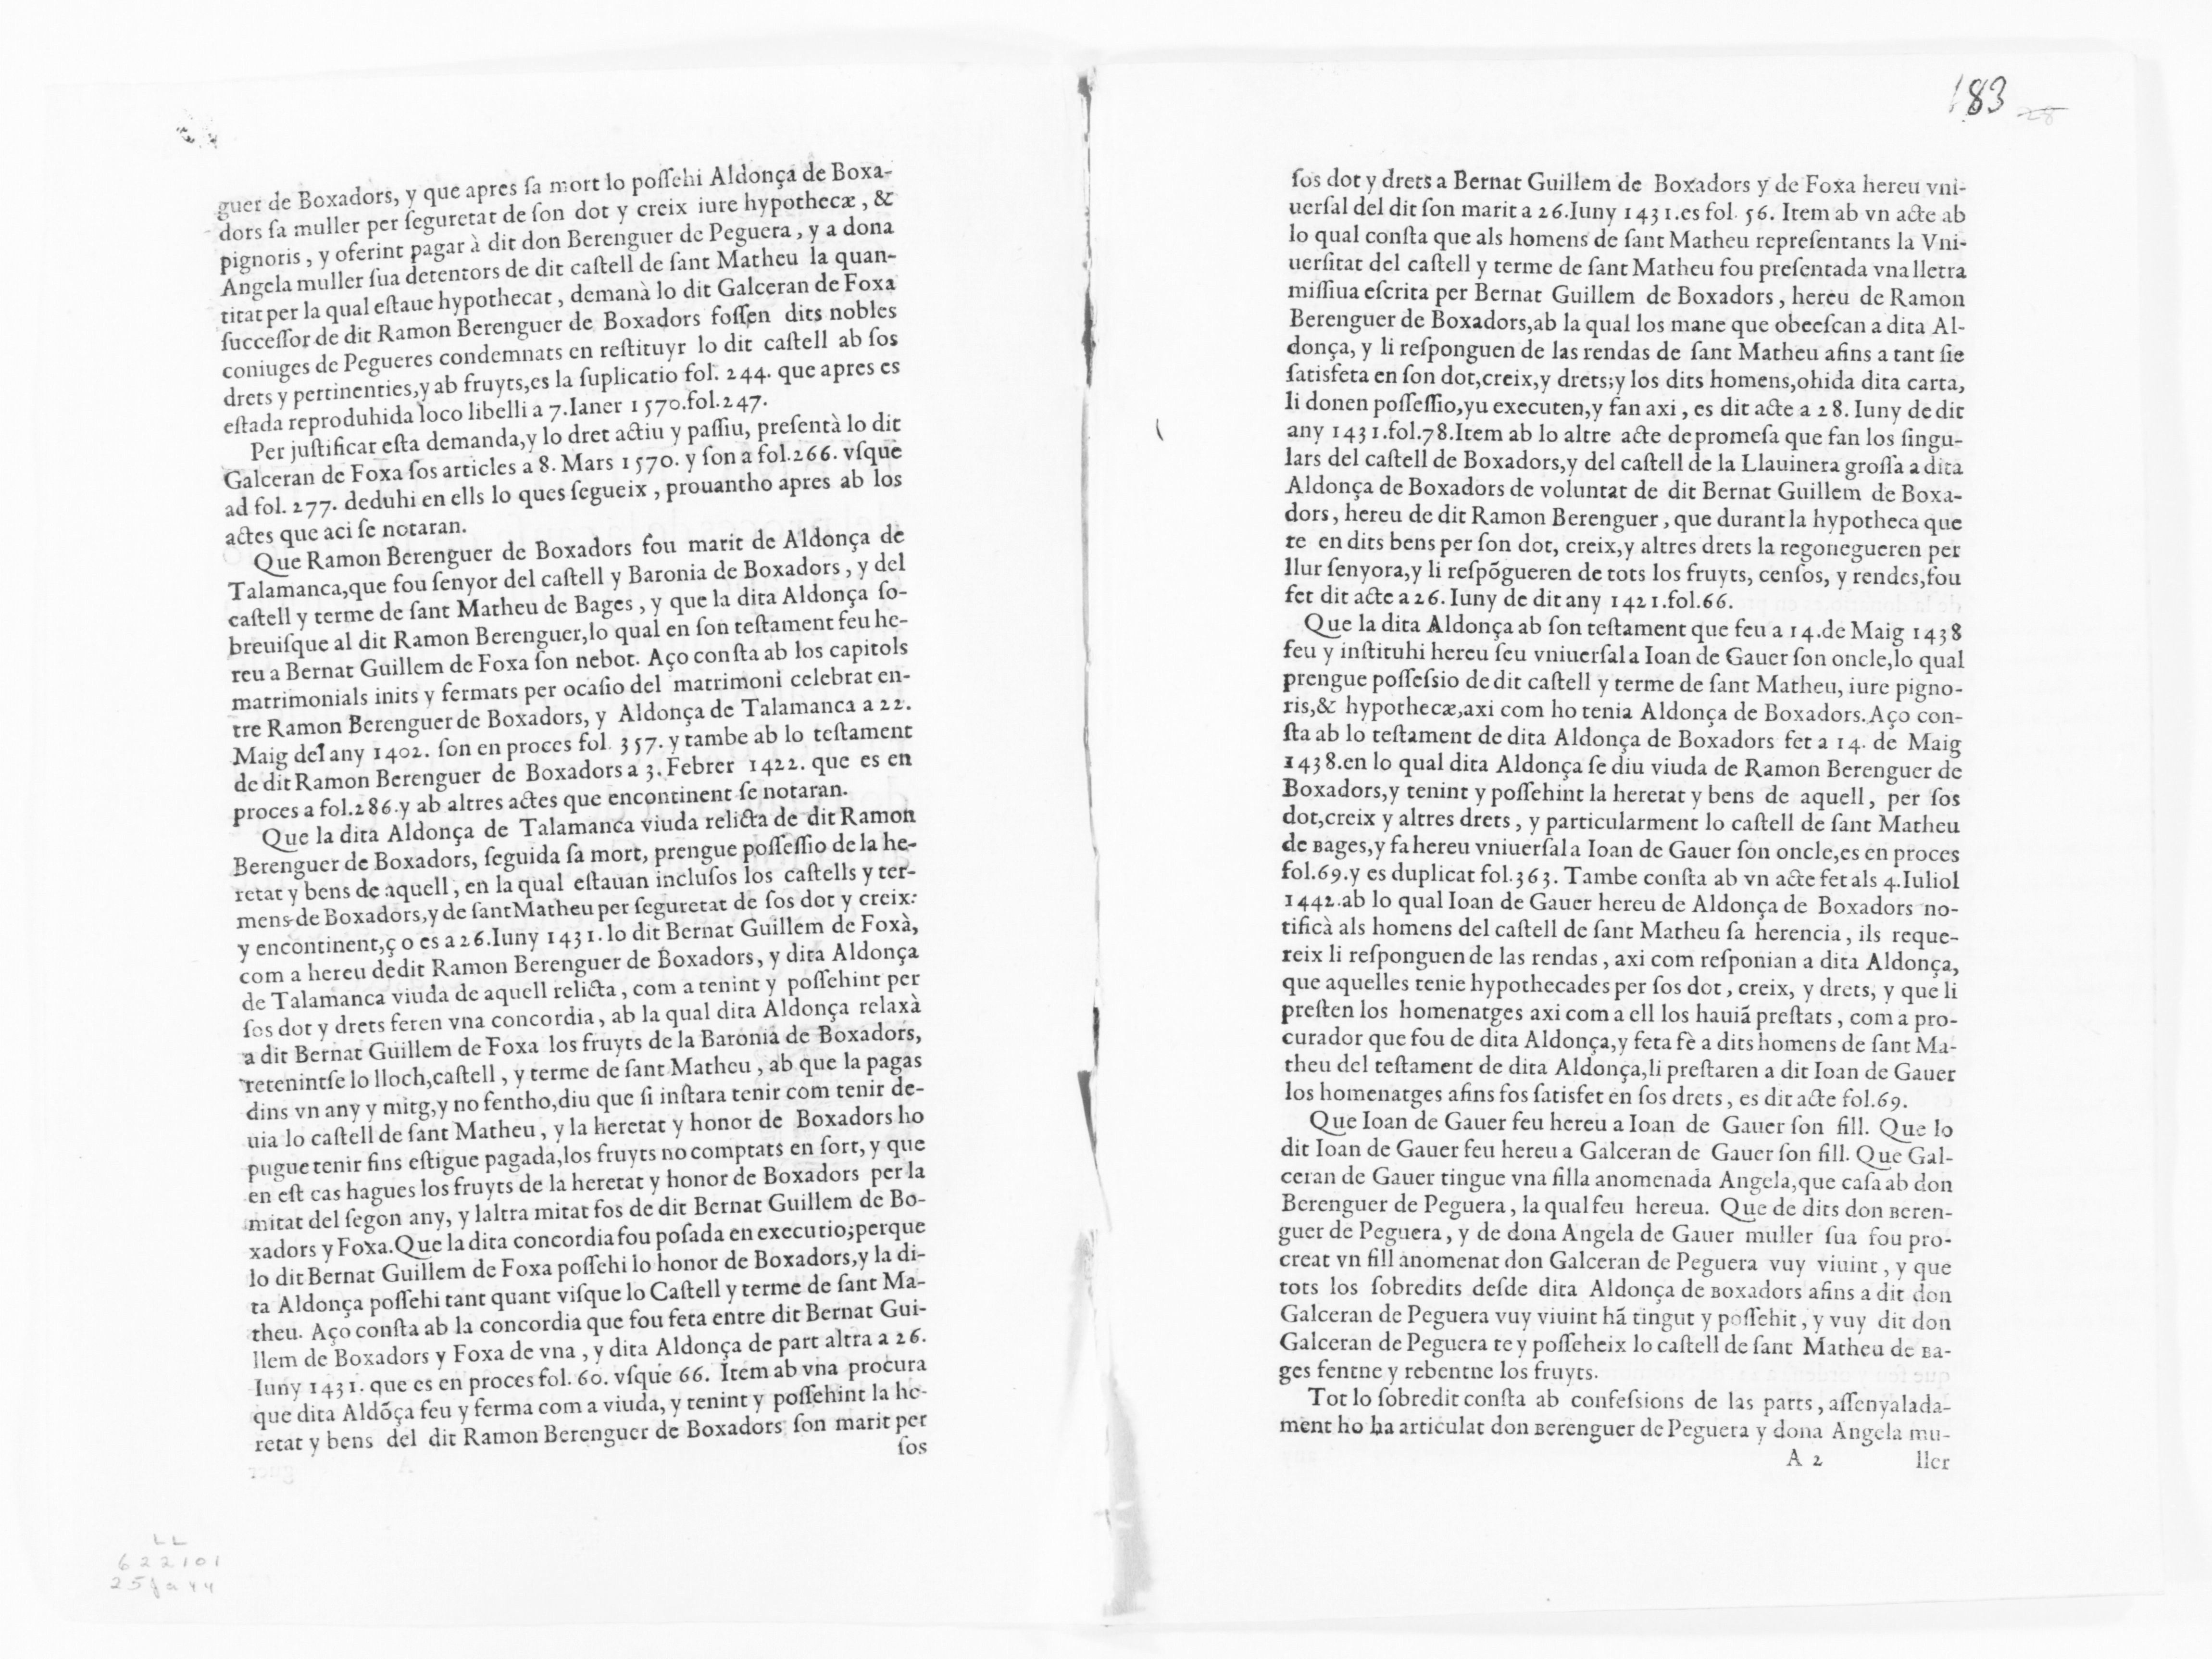 guer de Boxadors, y que apres ſa mort lo poſſehi Aldonça de Boxa-
dors ſa muller per ſeguretat de ſon dot y creix iure hypothecæ, &
pignoris, y oferint pagar à dit don Berenguer de Peguera, y a dona
Angela muller ſua detentors de dit caſtell de ſant Matheu la quan-
titat per la qual eſtaue hypothecat, demanà lo dit Galceran de Foxa
ſucceſſor de dit Ramon Berenguer de Boxadors foſſen dits nobles
coniuges de Pegueres condemnats en reſtituyr lo dit caſtell ab ſos
drets y pertinenties,y ab fruyts,es la ſuplicatio fol. 244. que apres es
eſtada reproduhida loco libelli a 7.Ianer 1570.fol.247.
Per juſtificar eſta demanda,y lo dret actiu y paſſiu, preſentà lo dit
Galceran de Foxa ſos articles a 8. Mars 1570. y ſon a fol.266. vſque
ad fol. 277. deduhi en ells lo ques ſegueix, prouantho apres ab los
actes que aci ſe notaran.
Que Ramon Berenguer de Boxadors fou marit de Aldonça de
Talamanca,que fou ſenyor del caſtell y Baronia de Boxadors, y del
caſtell y terme de ſant Matheu de Bages, y que la dita Aldonça ſo-
breuiſque al dit Ramon Berenguer,lo qual en ſon teſtament feu he-
reu a Bernat Guillem de Foxa ſon nebot. Aço conſta ab los capitols
matrimonials inits y fermats per ocaſio del matrimoni celebrat en-
tre Ramon Berenguer de Boxadors, y Aldonça de Talamanca a 22.
Maig del any 1402. ſon en proces fol. 357. y tambe ab lo teſtament
de dit Ramon Berenguer de Boxadors a 3. Febrer 1422. que es en
proces a fol.286.y ab altres actes que encontinent ſe notaran.
Que la dita Aldonça de Talamanca viuda relicta de dit Ramon
Berenguer de Boxadors, ſeguida ſa mort, prengue poſſeſſio de la he-
retat y bens de aquell, en la qual eſtauan incluſos los caſtells y ter-
mens de Boxadors,y de ſant Matheu per ſeguretat de ſos dot y creix:
y encontinent,ço es a 26.Iuny 1431. lo dit Bernat Guillem de Foxà,
com a hereu dedit Ramon Berenguer de Boxadors, y dita Aldonça
de Talamanca viuda de aquell relicta, com a tenint y poſſehint per
ſos dot y drets feren vna concordia, ab la qual dita Aldonça relaxà
a dit Bernat Guillem de Foxa los fruyts de la Baronia de Boxadors,
retenintſe lo lloch,caſtell, y terme de ſant Matheu, ab que la pagas
dins vn any y mitg,y no fentho,diu que ſi inſtara tenir com tenir de-
uia lo caſtell de ſant Matheu, y la heretat y honor de Boxadors ho
pugue tenir fins eſtigue pagada,los fruyts no comptats en ſort, y que
en eſt cas hagues los fruyts de la heretat y honor de Boxadors per la
mitat del ſegon any, y laltra mitat fos de dit Bernat Guillem de Bo-
xadors y Foxa.Que la dita concordia fou poſada en executio;perque
lo dit Bernat Guillem de Foxa poſſehi lo honor de Boxadors,y la di-
ta Aldonça poſſehi tant quant viſque lo Caſtell y terme de ſant Ma-
theu. Aço conſta ab la concordia que fou feta entre dit Bernat Gui-
llem de Boxadors y Foxa de vna, y dita Aldonça de part altra a 26.
Iuny 1431. que es en proces fol. 60. vſque 66. Item ab vna procura
que dita Aldõça feu y ferma com a viuda, y tenint y poſſehint la he-
retat y bens del dit Ramon Berenguer de Boxadors ſon marit per
ſos
LL
622101
25ja44
183
28
ſos dot y drets a Bernat Guillem de Boxadors y de Foxa hereu vni-
uerſal del dit ſon marit a 26.Iuny 1431.es fol. 56. Item ab vn acte ab
lo qual conſta que als homens de ſant Matheu repreſentants la Vni-
uerſitat del caſtell y terme de ſant Matheu fou preſentada vna lletra
miſſiua eſcrita per Bernat Guillem de Boxadors, hereu de Ramon
Berenguer de Boxadors,ab la qual los mane que obeeſcan a dita Al-
donça, y li reſponguen de las rendas de ſant Matheu afins a tant ſie
ſatisfeta en ſon dot,creix,y drets;y los dits homens,ohida dita carta,
li donen poſſeſſio,yu executen,y fan axi, es dit acte a 28. Iuny de dit
any 1431.fol.78.Item ab lo altre acte de promeſa que fan los ſingu-
lars del caſtell de Boxadors,y del caſtell de la Llauinera groſſa a dita
Aldonça de Boxadors de voluntat de dit Bernat Guillem de Boxa-
dors, hereu de dit Ramon Berenguer, que durant la hypotheca que
te en dits bens per ſon dot, creix,y altres drets la regonegueren per
llur ſenyora,y li reſpõgueren de tots los fruyts, cenſos, y rendes,fou
fet dit acte a 26. Iuny de dit any 1421.fol.66.
Que la dita Aldonça ab ſon teſtament que feu a 14.de Maig 1438
feu y inſtituhi hereu ſeu vniuerſal a Ioan de Gauer ſon oncle,lo qual
prengue poſſeſsio de dit caſtell y terme de ſant Matheu, iure pigno-
ris,& hypothecæ,axi com ho tenia Aldonça de Boxadors.Aço con-
ſta ab lo teſtament de dita Aldonça de Boxadors fet a 14. de Maig
1438.en lo qual dita Aldonça ſe diu viuda de Ramon Berenguer de
Boxadors,y tenint y poſſehint la heretat y bens de aquell, per ſos
dot,creix y altres drets, y particularment lo caſtell de ſant Matheu
de Bages,y fa hereu vniuerſal a Ioan de Gauer ſon oncle,es en proces
fol.69.y es duplicat fol.363. Tambe conſta ab vn acte fet als 4.Iuliol
1442.ab lo qual Ioan de Gauer hereu de Aldonça de Boxadors no-
tificà als homens del caſtell de ſant Matheu ſa herencia, ils reque-
reix li reſponguen de las rendas, axi com reſponian a dita Aldonça,
que aquelles tenie hypothecades per ſos dot, creix, y drets, y que li
preſten los homenatges axi com a ell los hauiã preſtats, com a pro-
curador que fou de dita Aldonça,y feta fè a dits homens de ſant Ma-
theu del teſtament de dita Aldonça,li preſtaren a dit Ioan de Gauer
los homenatges afins fos ſatisfet en ſos drets, es dit acte fol.69.
Que Ioan de Gauer feu hereu a Ioan de Gauer ſon fill. Que lo
dit Ioan de Gauer feu hereu a Galceran de Gauer ſon fill. Que Gal-
ceran de Gauer tingue vna filla anomenada Angela,que caſa ab don
Berenguer de Peguera, la qual feu hereua. Que de dits don Beren-
guer de Peguera, y de dona Angela de Gauer muller ſua fou pro-
creat vn fill anomenat don Galceran de Peguera vuy viuint, y que
tots los ſobredits deſde dita Aldonça de Boxadors afins a dit don
Galceran de Peguera vuy viuint hã tingut y poſſehit, y vuy dit don
Galceran de Peguera te y poſſeheix lo caſtell de ſant Matheu de Ba-
ges fentne y rebentne los fruyts.
Tot lo ſobredit conſta ab confeſsions de las parts, aſſenyalada-
ment ho ha articulat don Berenguer de Peguera y dona Angela mu-
A 2 ller